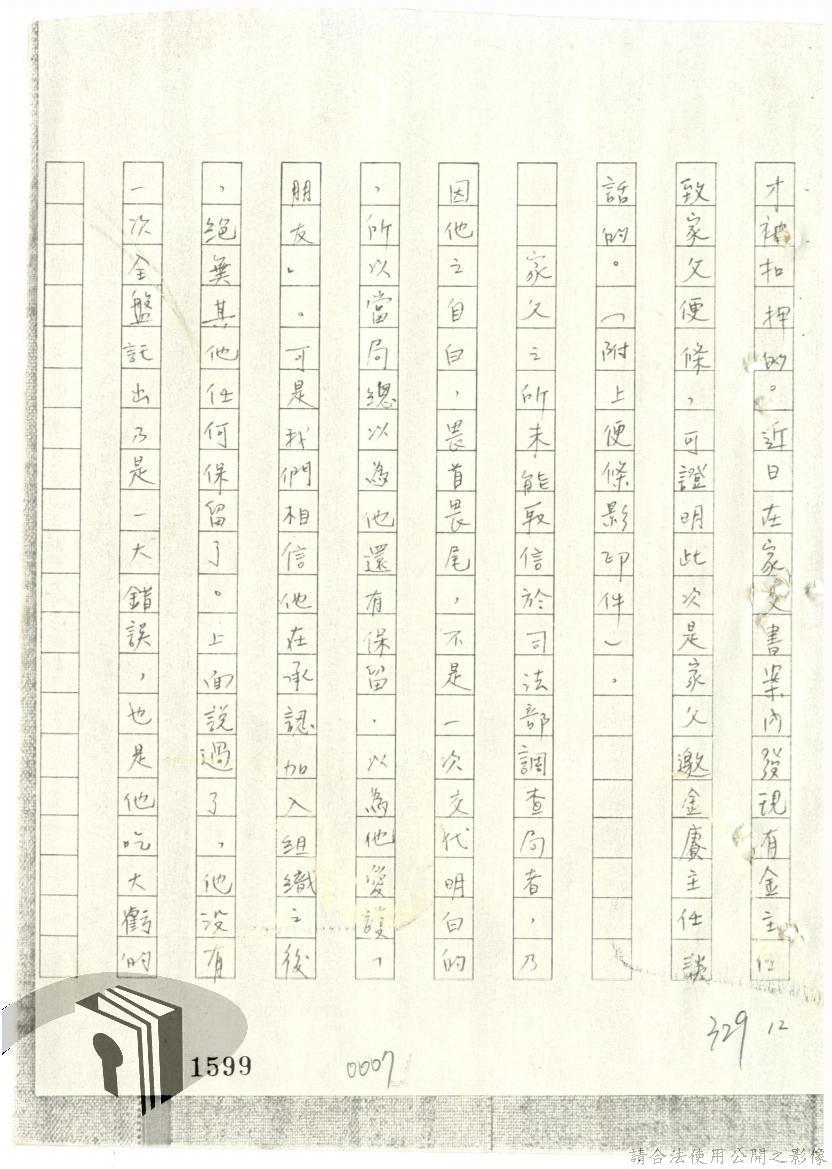 才被扣押的。近日在家父書案內發現有金主任
致家父便條，可證明此次是家父邀金賡主任談
話的。（附上便條影印件）。
家父之所未能取信於司法部調查局者，乃
因他之自白，畏首畏尾，不是一次交代明白的
，所以當局總以為他還有保留．以為他愛護、
朋友。。可是我們相信他在承認加入組織之後
，絕無其他任何保留了。上面說過了，他沒有
一次全盤託出乃是一大錯誤，也是他吃大虧的
329 12
1599
0007
請合法使用公開之影像